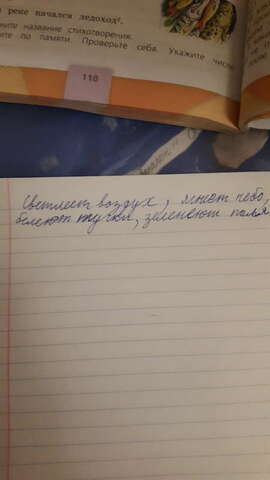 реке начался ледоход².
название стихотворения.
по памяти. Проверьте себя. Укажите число
110
Светлеет воздух, небо,
белеют тучки, зеленеют поля